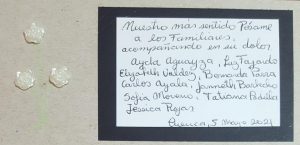 Nuestro mas sentido Pésame
a los Familiares,
acompañando en su dolor
Aycta Aguayza, Luz Fajardo
Elizabeth Valdez, Bernarda Parra
Carlos Ayala, Janneth Barbecho
Sofia Moreno, Tatiana Padilla
Jessica Rojas
Cuenca, 5 Mayo 2021